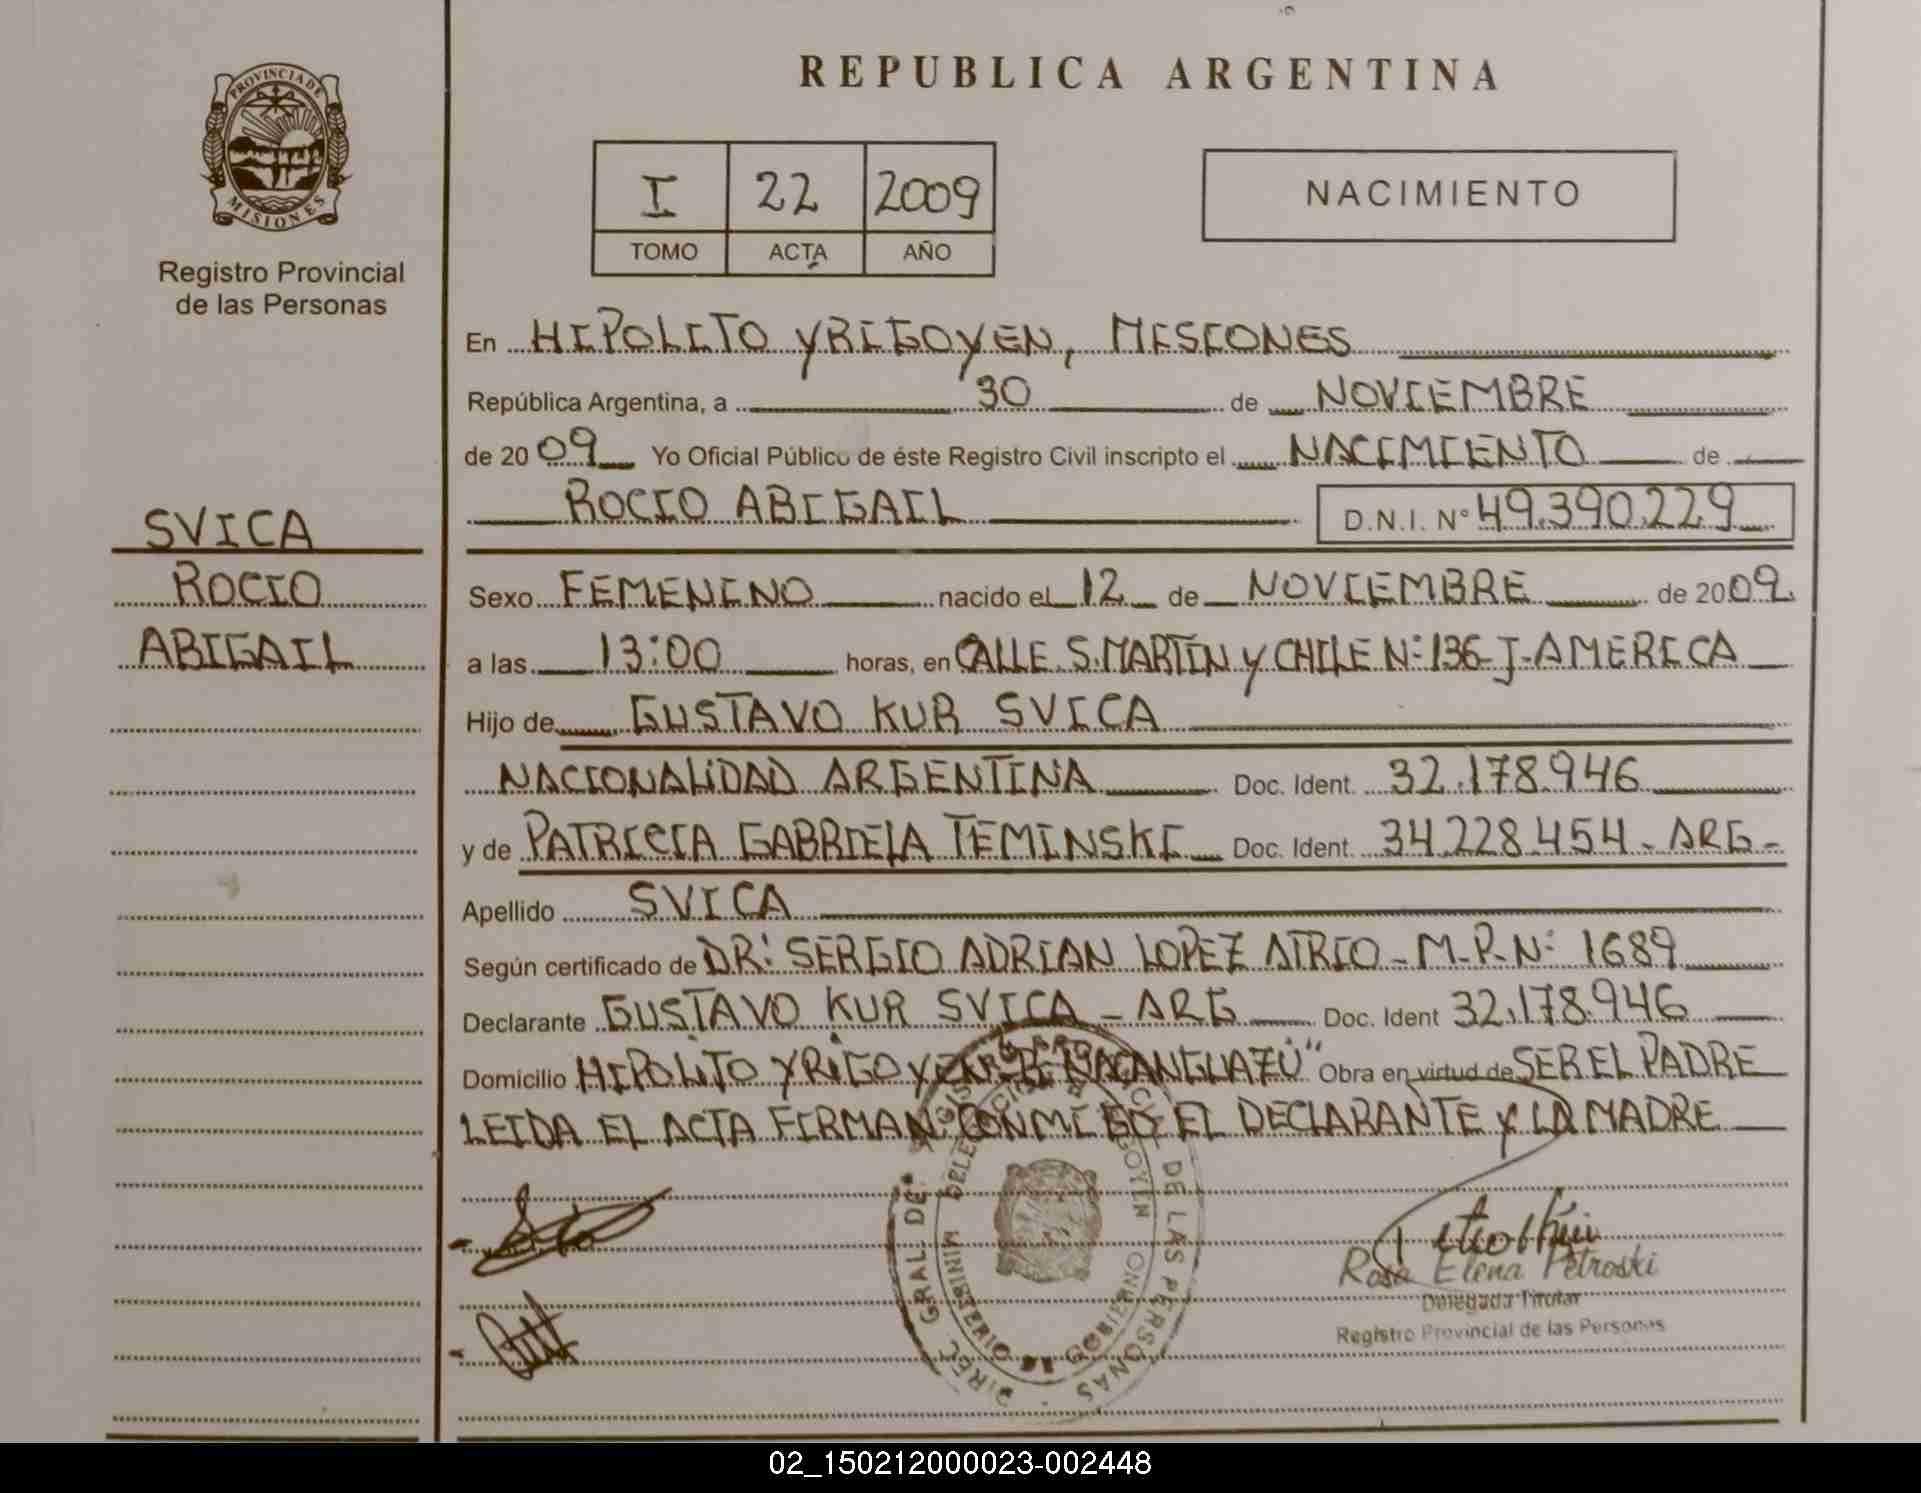 REPUBLICA ARGENTINA
PROVINCIA DE MISIONES
Registro Provincial
de las Personas
I 22 2009
TOMO ACTA AÑO
NACIMIENTO
SVICA
ROCIO
ABIGAIL
En HIPOLITO YRIGOYEN, MISIONES
República Argentina, a 30 de NOVIEMBRE
de 2009 Yo Oficial Público de éste Registro Civil inscripto el NACIMIENTO de
ROCIO ABIGAIL D.N.I. Nº 49.390.229
Sexo FEMENINO nacido el 12 de NOVIEMBRE de 2009.
a las 13:00 horas, en CALLE S. MARTIN y CHILE Nº 136-J-AMERICA
Hijo de GUSTAVO KUR SVICA
NACIONALIDAD ARGENTINA Doc. Ident. 32.178.946
y de PATRICIA GABRIELA TEMINSKI Doc. Ident. 34.228.454 - ARG -
Apellido SVICA
Según certificado de DR: SERGIO ADRIAN LOPEZ ATRIO - M.P.Nº 1689
Declarante GUSTAVO KUR SVICA - ARG Doc. Ident 32.178.946
Domicilio HIPOLITO YRIGOYEN Obra en virtud de SER EL PADRE
LEIDA EL ACTA FIRMAN CONMIGO EL DECLARANTE Y LA MADRE
DIREC. GRAL. DE DE LAS PERSONAS
MINISTERIO DE GOBIERNO
Rosa Elena Petroski
Delegada Titular
Registro Provincial de las Personas
02_150212000023-002448